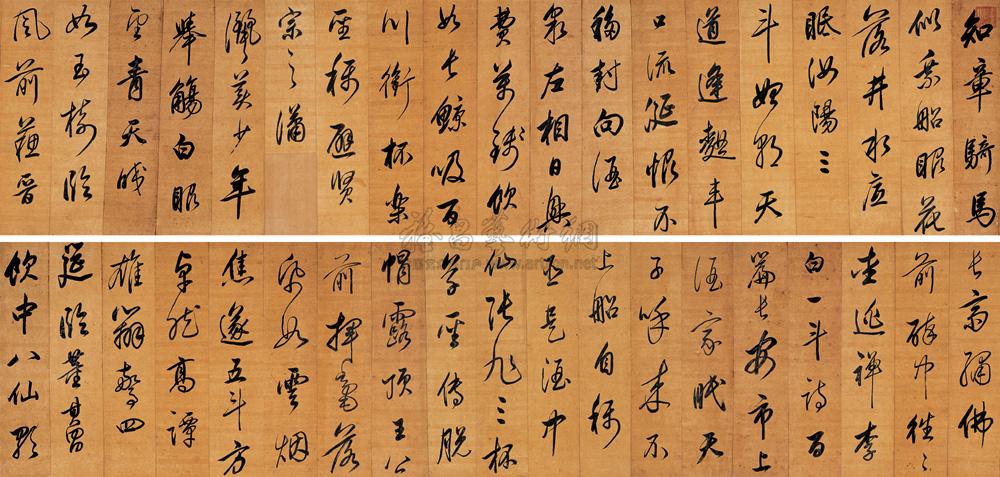 知章騎馬
似乘船眼花
落井水底
眠汝陽三
斗始朝天
道逢麴車
口流涎恨不
移封向酒
泉左相日興
費萬錢飲
如長鯨吸百
川銜杯樂
聖稱避賢
宗之瀟
灑美少年
舉觴白眼
望青天皎
如玉樹臨
風前蘇晉
長齋繡佛
前醉中往〻
愛逃禪李
白一斗詩百
篇長安市上
酒家眠天
子呼來不
上船自稱
臣是酒中
仙張旭三杯
草聖傳脫
帽露頂王公
前揮毫落
紙如雲烟
焦遂五斗方
卓然高譚
雄辯驚四
筵臨董其昌
飲中八仙歌
雅昌藝術網